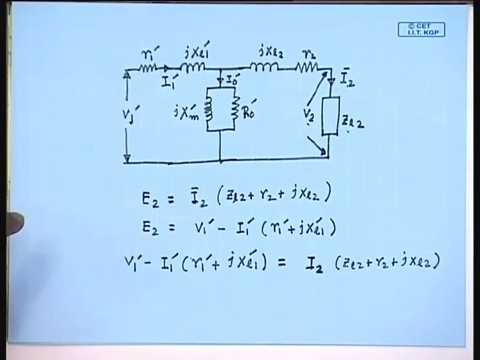 © CET
I.I.T. KGP
r₁′ jXₑ₁′ jxₑ₂ r₂
I₁′ I₀′ Ī₂
V₁′ jX′m R₀′ V₂ Zₑ₂
E₂ = Ī₂ (Zₑ₂ + r₂ + jxₑ₂)
E₂ = V₁′ − I₁′ (r₁′ + jxₑ₁′)
V₁′ − I₁′ (r₁′ + jxₑ₁′) = I₂ (Zₑ₂ + r₂ + jxₑ₂)